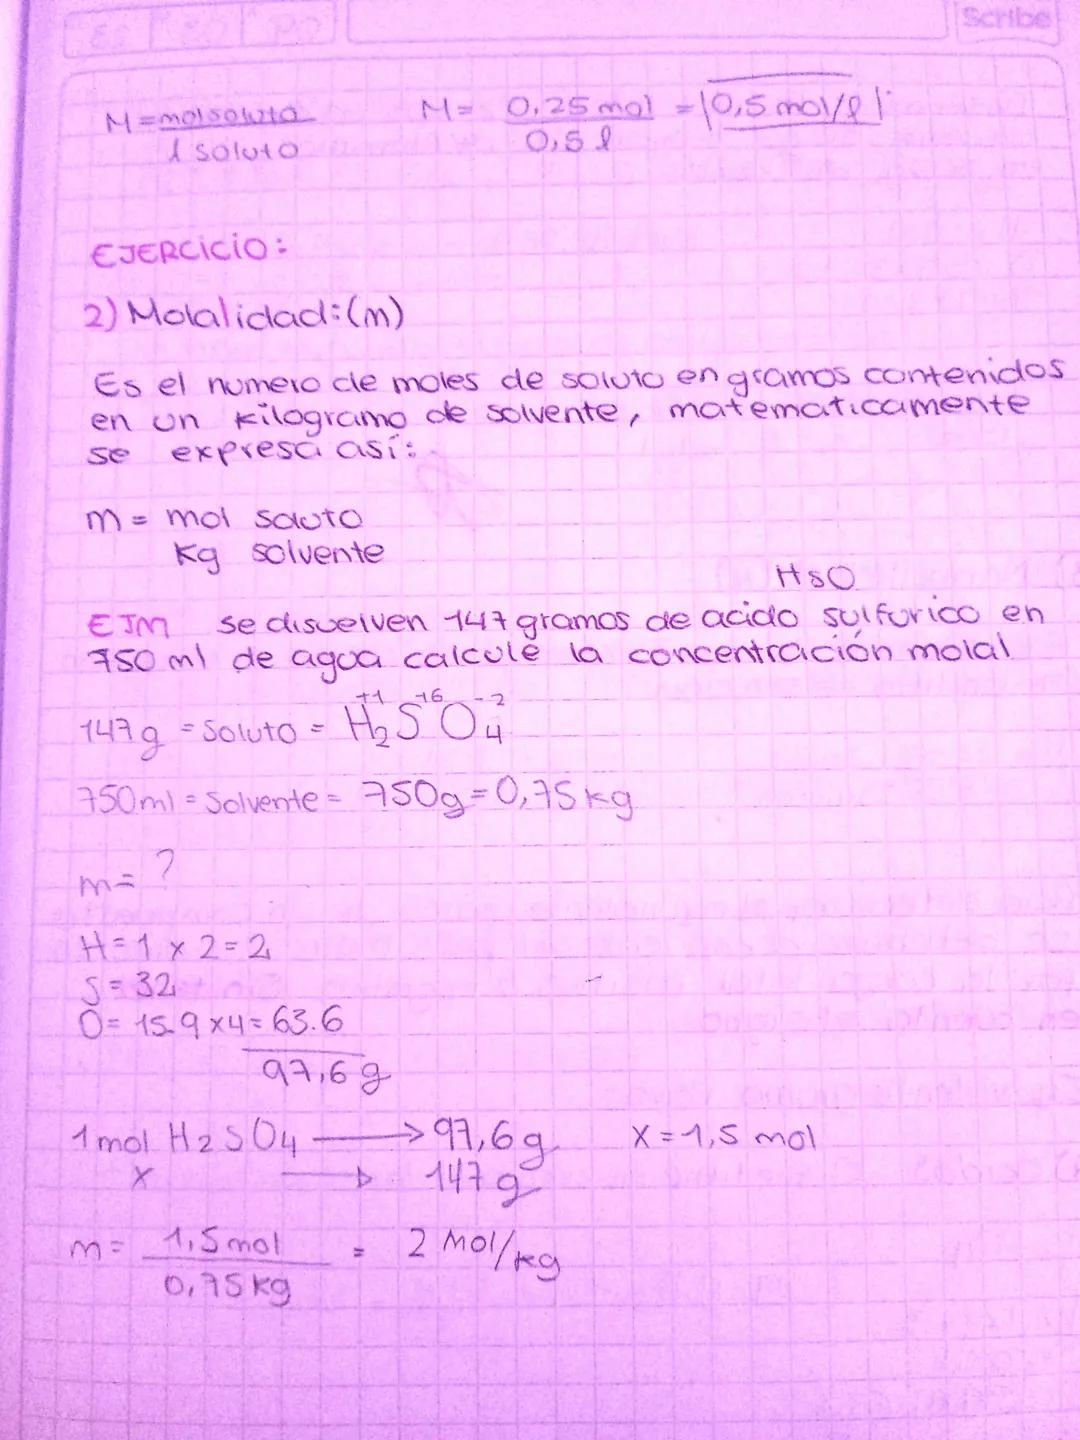 Scribe
M = mol soluto / l soluto   M = 0.25 mol / 0,5 l = 0,5 mol/l
EJERCICIO:
2) Molalidad: (m)
Es el numero de moles de soluto en gramos contenidos
en un kilogramo de solvente, matematicamente
se expresa así:
m = mol soluto
Kg solvente
HsO
EJM se disuelven 147 gramos de acido sulfurico en
750 ml de agua calcule la concentración molal
+1 +6 -2
147g = Soluto = H2SO4
750ml = Solvente = 750g = 0,75 kg
m = ?
H = 1 x 2 = 2
S = 32
O = 15.9 x 4 = 63.6
97,6 g
1 mol H2SO4 → 97,6 g   X = 1,5 mol
X → 147 g
m = 1,5 mol / 0,75 kg = 2 Mol/kg